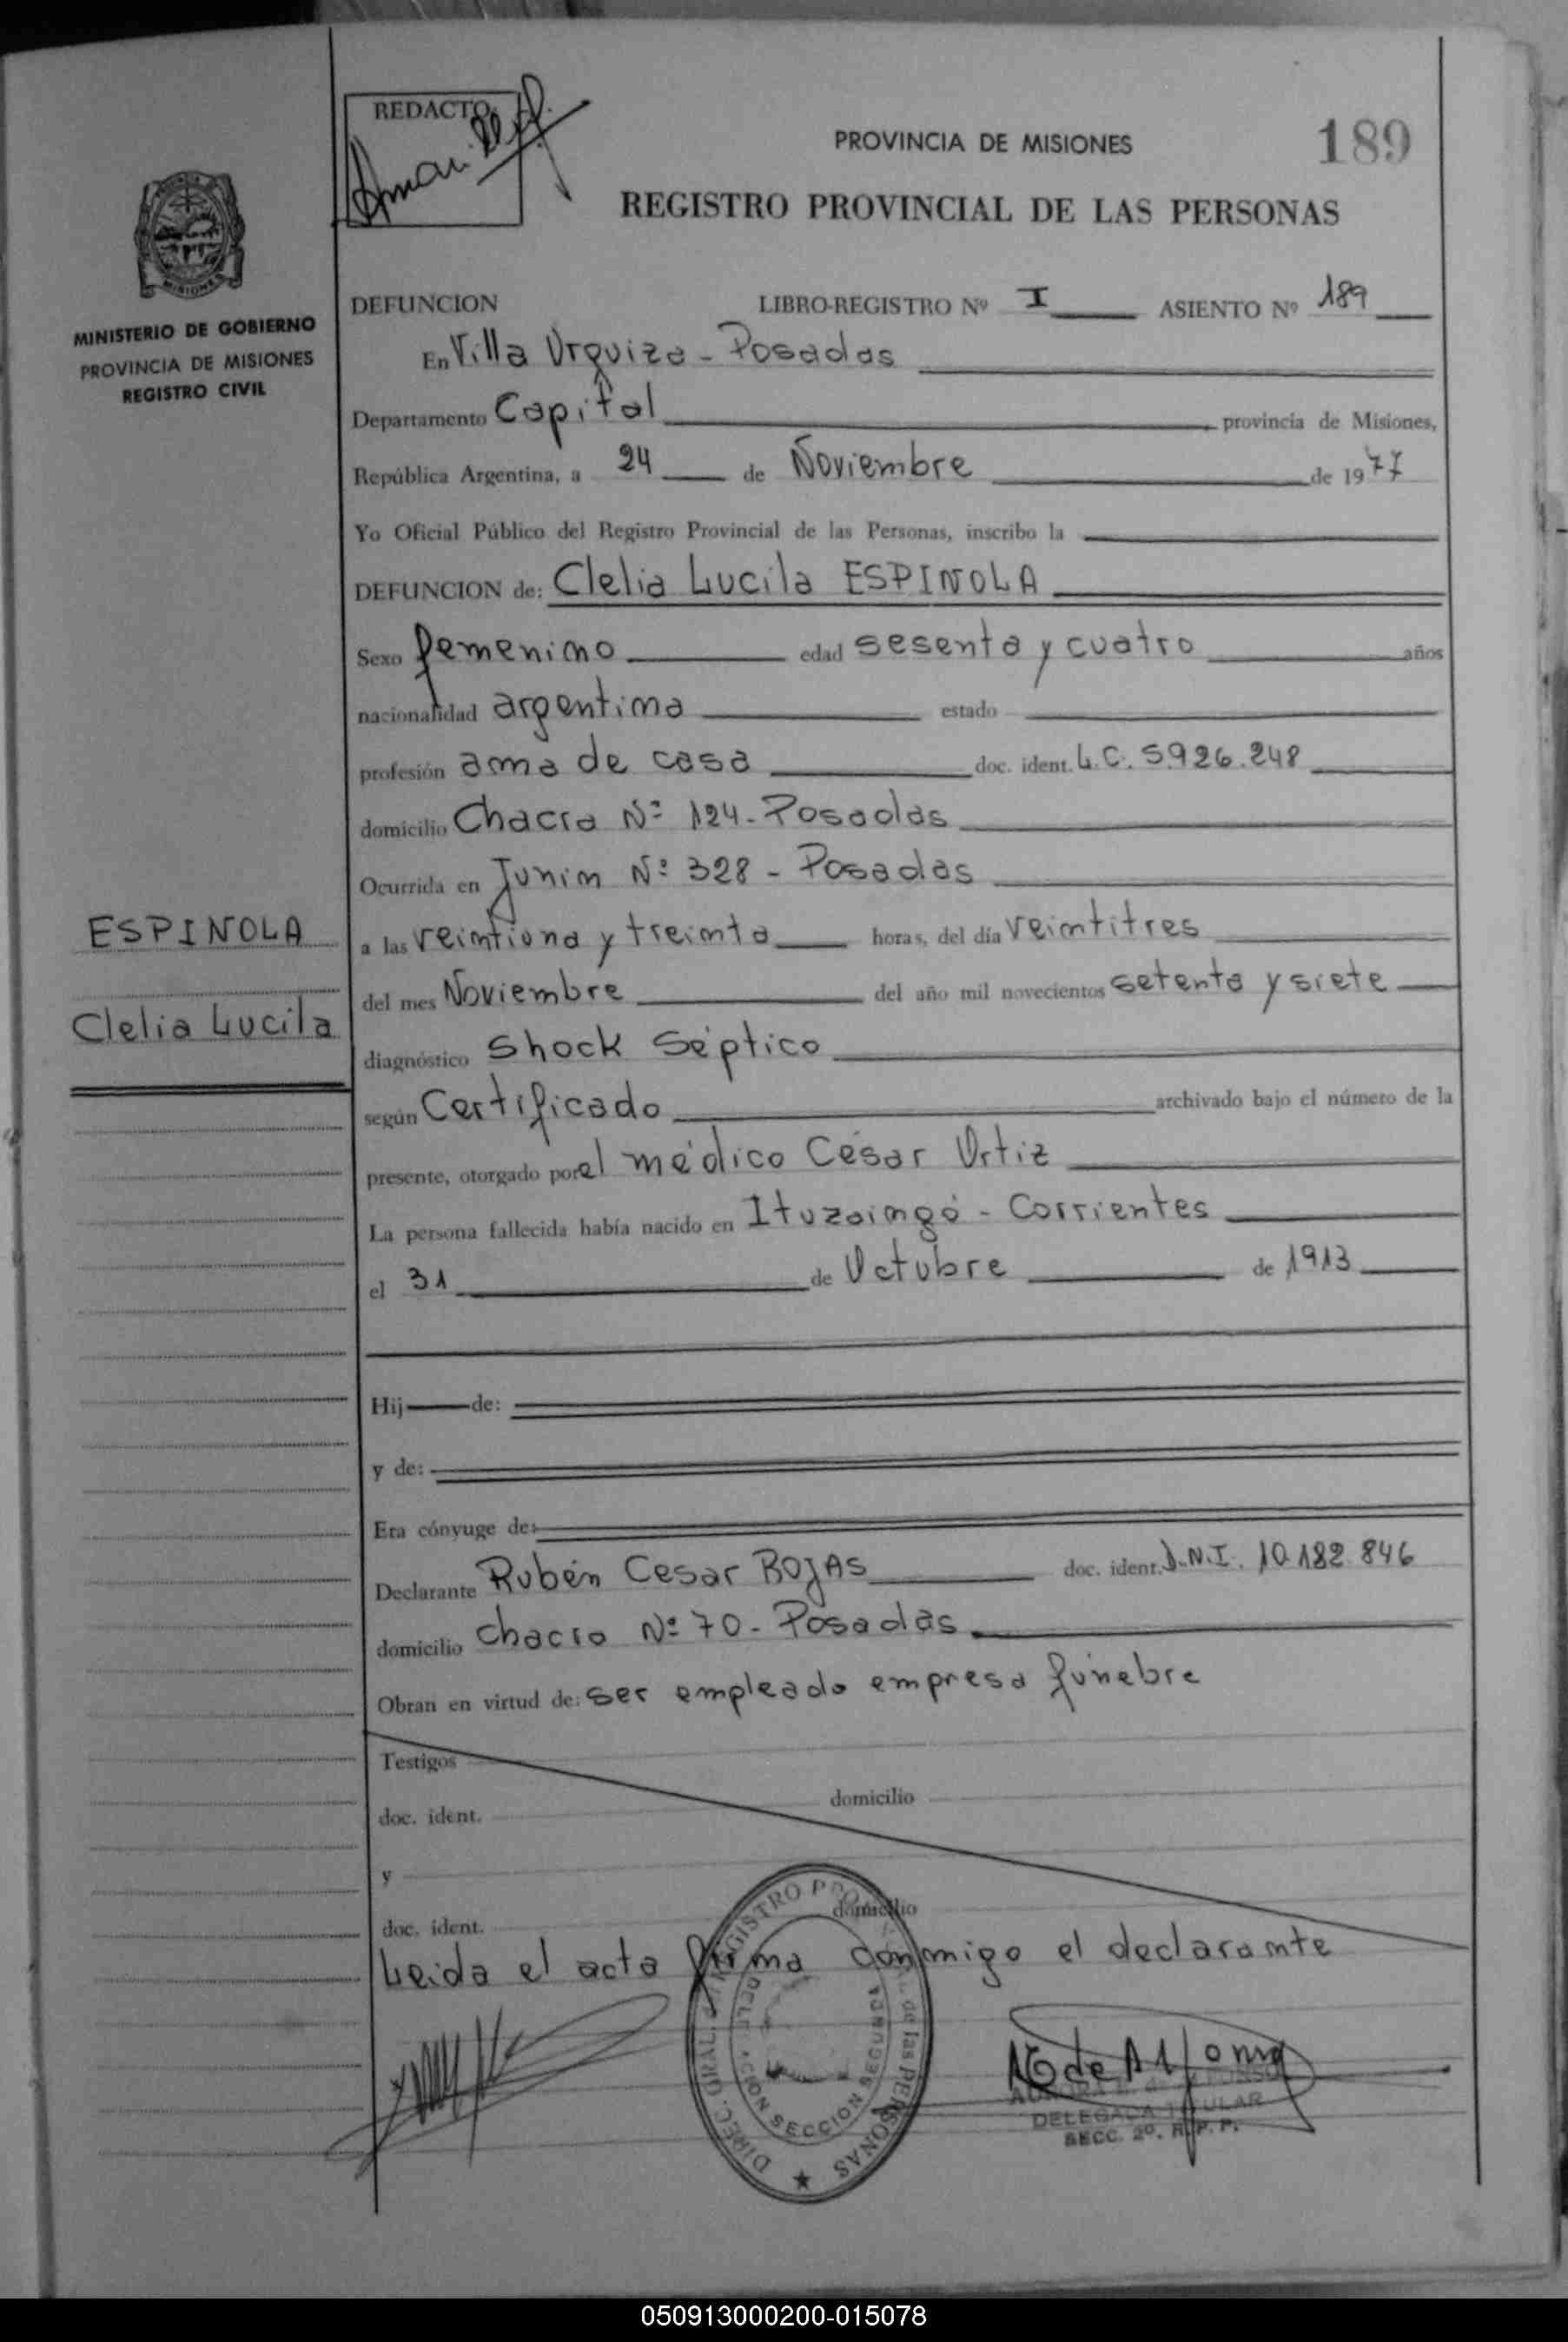 REDACTO
PROVINCIA DE MISIONES
189
REGISTRO PROVINCIAL DE LAS PERSONAS
MISIONES
MINISTERIO DE GOBIERNO
PROVINCIA DE MISIONES
REGISTRO CIVIL
DEFUNCION LIBRO-REGISTRO Nº I ASIENTO Nº 189
En Villa Urquiza - Posadas
Departamento Capital provincia de Misiones,
República Argentina, a 24 de Noviembre de 1977
Yo Oficial Público del Registro Provincial de las Personas, inscribo la
DEFUNCION de: Clelia Lucila ESPINOLA
Sexo femenino edad sesenta y cuatro años
nacionalidad argentina estado
profesión ama de casa doc. ident. L.C. 5.926.248
domicilio Chacra Nº 124 - Posadas
Ocurrida en Junin Nº 328 - Posadas
ESPINOLA
Clelia Lucila
a las veintiuna y treinta horas, del día veintitres
del mes Noviembre del año mil novecientos setenta y siete
diagnóstico Shock Séptico
según Certificado archivado bajo el número de la
presente, otorgado por el médico César Ortiz
La persona fallecida había nacido en Ituzaingó - Corrientes
el 31 de Octubre de 1913
Hij de:
y de:
Era cónyuge de:
Declarante Rubén Cesar ROJAS doc. ident. D.N.I. 10.182.846
domicilio Chacra Nº 70 - Posadas
Obran en virtud de: ser empleado empresa fúnebre
Testigos
doc. ident. domicilio
y
doc. ident. domicilio
Leida el acta firma conmigo el declarante
DIREC. GRAL. REGISTRO PROV. de las PERSONAS
SECCION SEGUNDA
DELEGADA TITULAR
SECC. 2º. R. P. P.
050913000200-015078